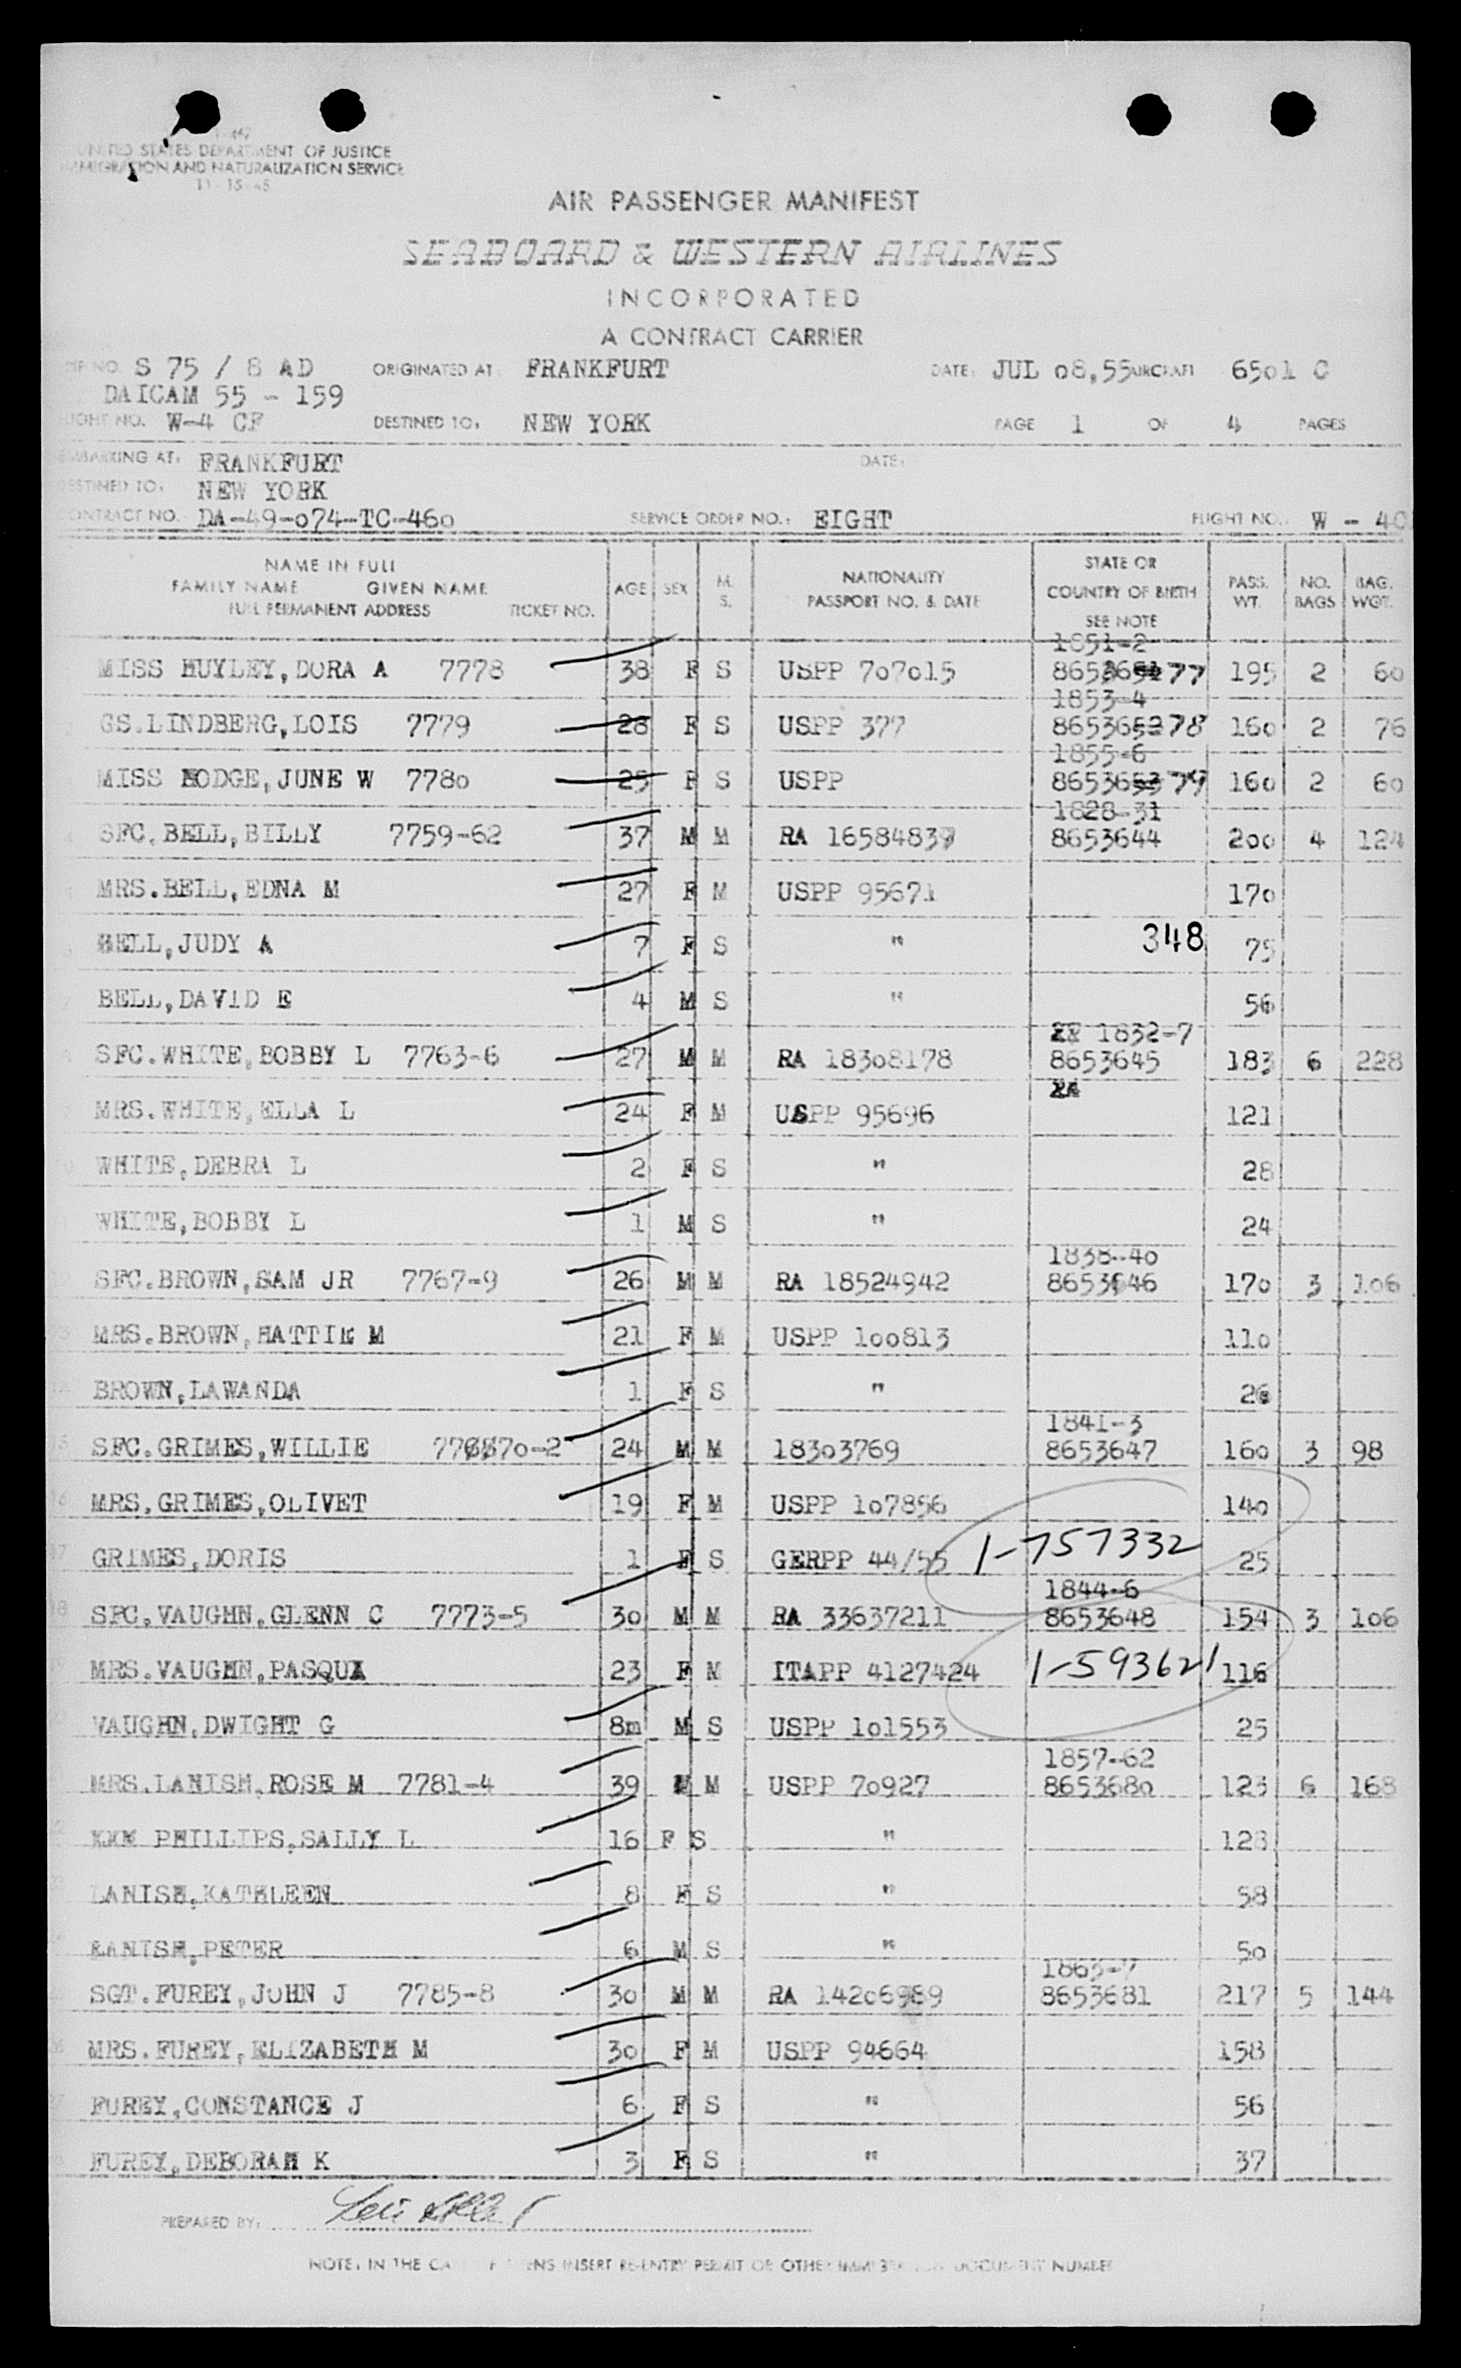 UNITED STATES DEPARTMENT OF JUSTICE
IMMIGRATION AND NATURALIZATION SERVICE
11-15-45
AIR PASSENGER MANIFEST
SEABOARD & WESTERN AIRLINES
INCORPORATED
A CONTRACT CARRIER
NO. S 75 / 8 AD ORIGINATED AT: FRANKFURT DATE: JUL 08,55 AIRCRAFT 6501 C
DAICAM 55 - 159
FLIGHT NO. W-4 CF DESTINED TO: NEW YORK PAGE 1 OF 4 PAGES
EMBARKING AT: FRANKFURT DATE:
DESTINED TO: NEW YORK
CONTRACT NO. DA-49-074-TC-460 SERVICE ORDER NO.: EIGHT FLIGHT NO. W - 4C
NAME IN FULL
FAMILY NAME GIVEN NAME
FULL PERMANENT ADDRESS TICKET NO. AGE SEX M. S. NATIONALITY PASSPORT NO. & DATE STATE OR COUNTRY OF BIRTH SEE NOTE PASS. WT. NO. BAGS BAG. WGT.
1851-2
MISS HUYLEY, DORA A 7778 38 F S USPP 707015 86536 77 195 2 60
1853-4
GS. LINDBERG, LOIS 7779 28 F S USPP 377 8653652 78 160 2 76
1855-6
MISS HODGE, JUNE W 7780 25 F S USPP 8653653 79 160 2 60
1828-31
SFC. BELL, BILLY 7759-62 37 M M RA 16584839 8653644 200 4 124
MRS. BELL, EDNA M 27 F M USPP 95671 170
BELL, JUDY A 7 F S " 348 75
BELL, DAVID E 4 M S " 56
1832-7
SFC. WHITE, BOBBY L 7763-6 27 M M RA 18308178 8653645 183 6 228
MRS. WHITE, ELLA L 24 F M USPP 95696 121
WHITE, DEBRA L 2 F S " 28
WHITE, BOBBY L 1 M S " 24
1838-40
SFC. BROWN, SAM JR 7767-9 26 M M RA 18524942 8653646 170 3 106
MRS. BROWN, HATTIE M 21 F M USPP 100813 110
BROWN, LAWANDA 1 F S " 26
1841-3
SFC. GRIMES, WILLIE 7770-2 24 M M 18303769 8653647 160 3 98
MRS. GRIMES, OLIVET 19 F M USPP 107856 140
GRIMES, DORIS 1 F S GERPP 44/55 1-757332 25
1844-6
SFC. VAUGHN, GLENN C 7773-5 30 M M RA 33637211 8653648 154 3 106
MRS. VAUGHN, PASQUA 23 F M ITAPP 4127424 1-593621 116
VAUGHN, DWIGHT G 8m M S USPP 101553 25
1857-62
MRS. LANISH, ROSE M 7781-4 39 M USPP 70927 8653680 123 6 168
PHILLIPS, SALLY L 16 F S " 128
LANISH, KATHLEEN 8 F S " 58
LANISH, PETER 6 M S " 50
1863-7
SGT. FUREY, JOHN J 7785-8 30 M M RA 14206989 8653681 217 5 144
MRS. FUREY, ELIZABETH M 30 F M USPP 94664 158
FUREY, CONSTANCE J 6 F S " 56
FUREY, DEBORAH K 3 F S " 37
PREPARED BY:
NOTE: IN THE INSERT RE-ENTRY PERMIT OR OTHER DOCUMENT NUMBER